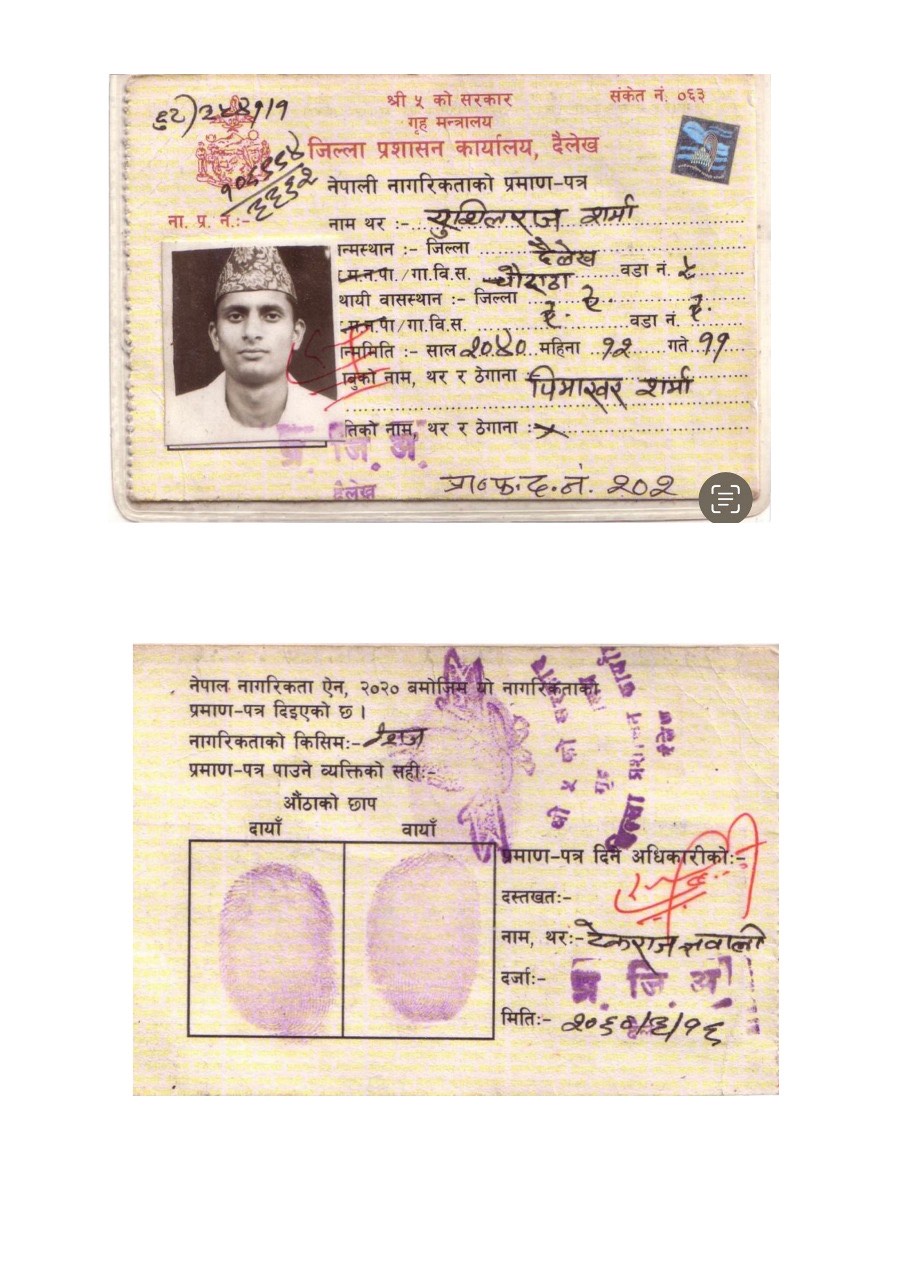 श्री ५ को सरकार
संकेत नं. ०६३
गृह मन्त्रालय
जिल्ला प्रशासन कार्यालय, दैलेख
नेपाली नागरिकताको प्रमाण-पत्र
ना. प्र. नं.:-
नाम थर :- सुशिलराज शर्मा
न्मिस्थान :- जिल्ला दैलेख
न.पा./गा.वि.स. चौराठा वडा नं. ८
थायी वासस्थान :- जिल्ला ऐ. ऐ.
न.पा/गा.वि.स. ऐ. वडा नं. ऐ.
न्मिमिति :- साल २०४० महिना १२ गते ११
बुको नाम, थर र ठेगाना शर्मा
तिको नाम, थर र ठेगाना :- x
प्र. जि. अ.
दैलेख
प्रा०फ.द.नं. २०२
नेपाल नागरिकता ऐन, २०२० बमोजिम यो नागरिकताको
प्रमाण-पत्र दिइएको छ ।
नागरिकताको किसिम:- वंशज
प्रमाण-पत्र पाउने व्यक्तिको सही:-
औंठाको छाप
दायाँ वायाँ
प्रमाण-पत्र दिने अधिकारीको:-
दस्तखत:-
नाम, थर:- टेकराज ज्ञवाली
दर्जा:- प्र. जि. अ.
मिति:- २०६०/६/१६